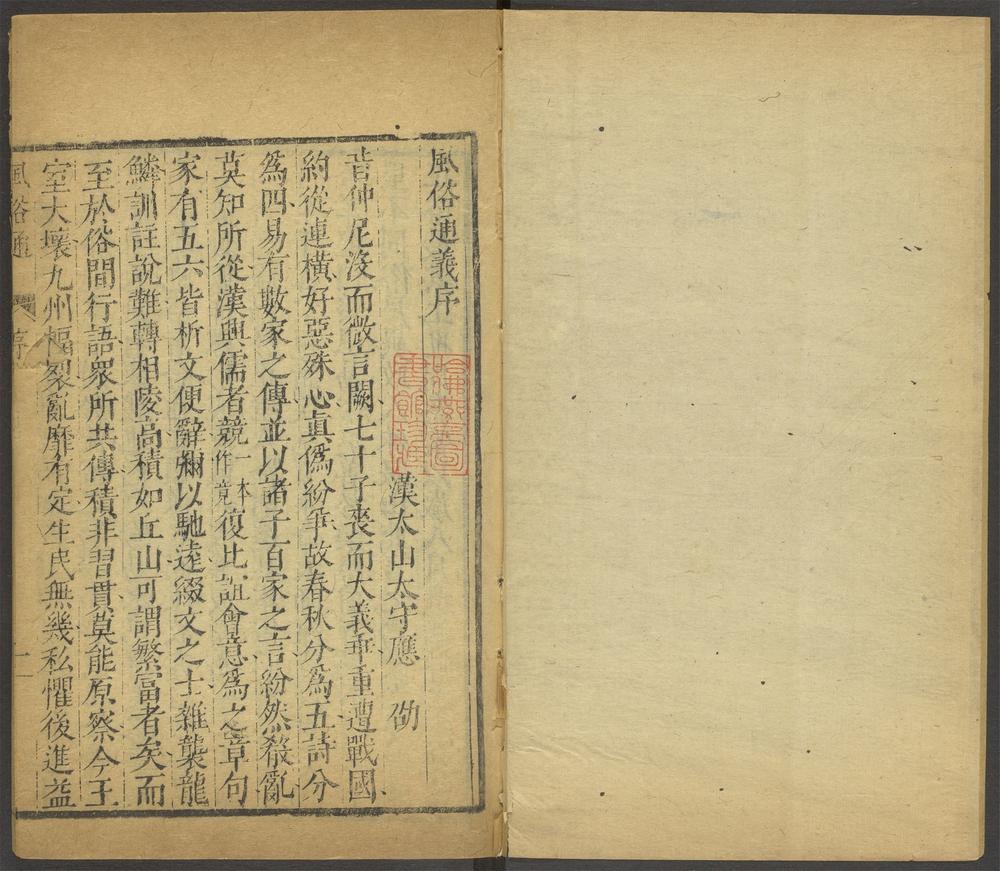 風俗通義序
漢太山太守應 劭
昔仲尼沒而微言闕七十子喪而大義乖重遭戰國
約從連橫好惡殊心真僞紛爭故春秋分爲五詩分
爲四易有數家之傳並以諸子百家之言紛然殽亂
莫知所從漢興儒者競一本作竟復比誼會意爲之章句
家有五六皆析文便辭彌以馳遠綴文之士雜襲龍
鱗訓註說難轉相陵高積如丘山可謂繁富者矣而
至於俗間行語衆所共傳積非習貫莫能原察今王
室大壞九州幅裂亂靡有定生民無幾私懼後進益
風俗通 序 一
哈佛燕京圖書館珍藏